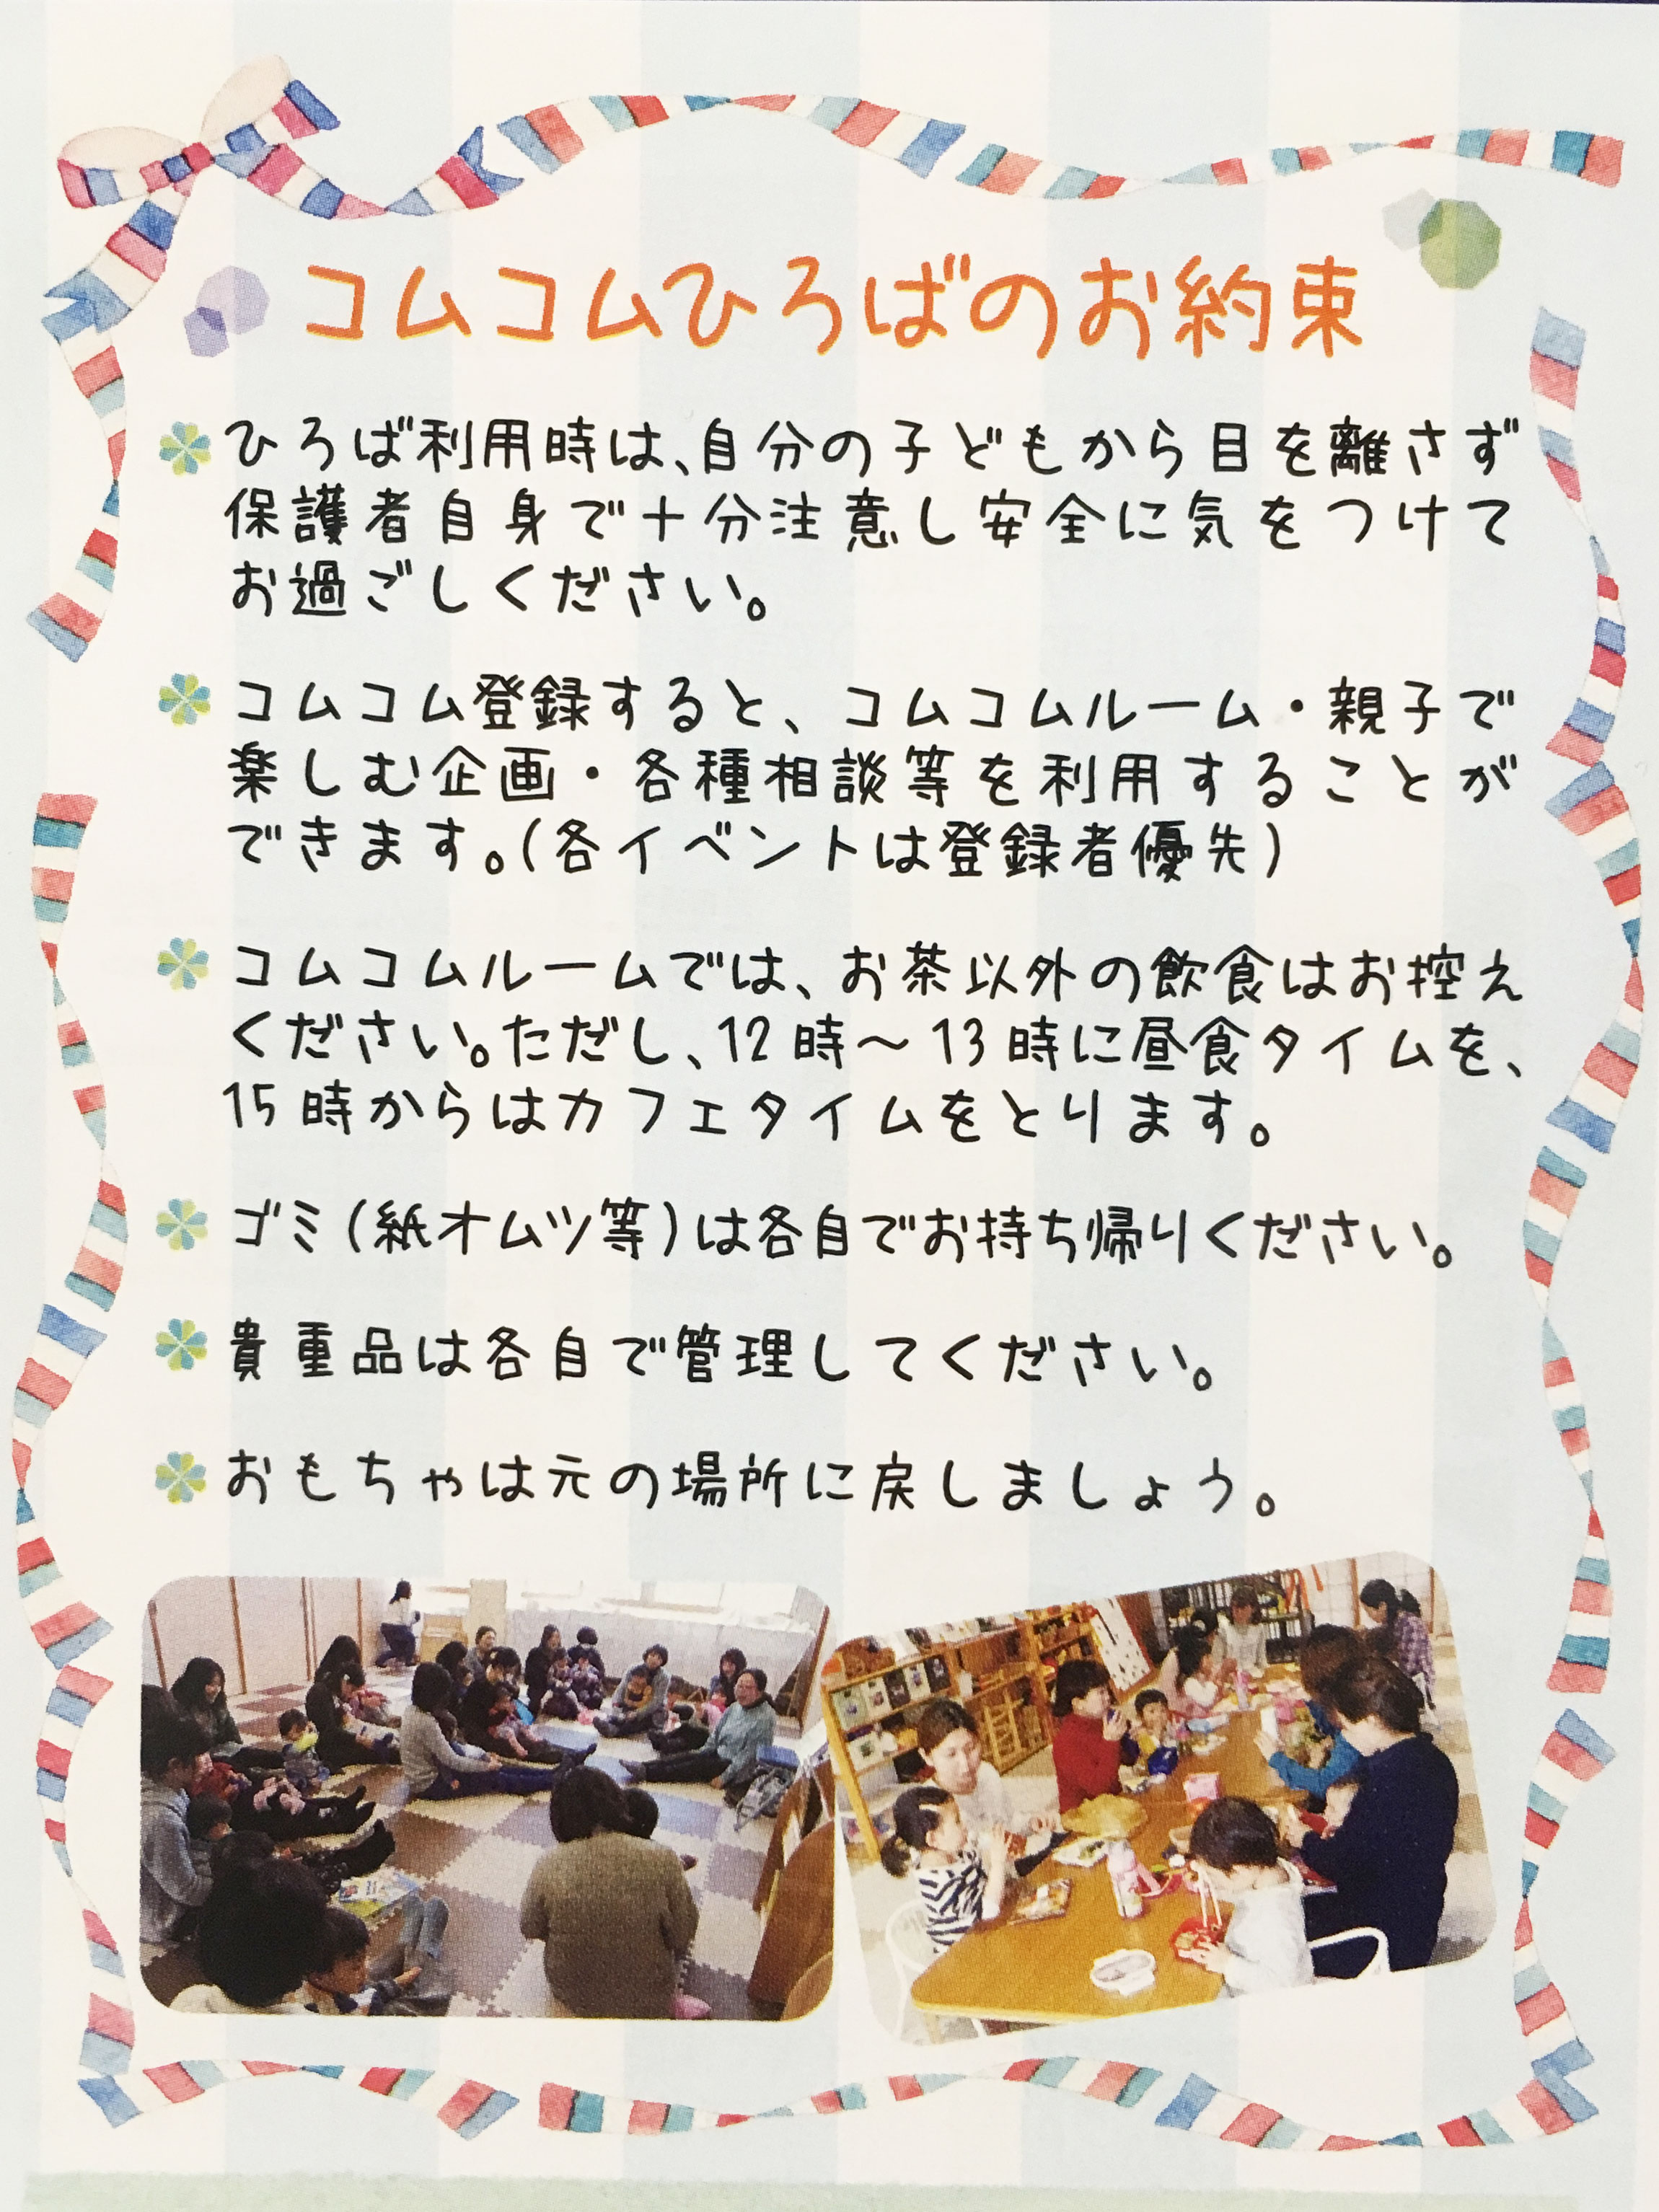 コムコムひろばのお約束
ひろば利用時は、自分の子どもから目を離さず
保護者自身で十分注意し安全に気をつけて
お過ごしください。
コムコム登録すると、コムコムルーム・親子で
楽しむ企画・各種相談等を利用することが
できます。(各イベントは登録者優先)
コムコムルームでは、お茶以外の飲食はお控え
ください。ただし、12時～13時に昼食タイムを、
15時からはカフェタイムをとります。
ゴミ(紙オムツ等)は各自でお持ち帰りください。
貴重品は各自で管理してください。
おもちゃは元の場所に戻しましょう。